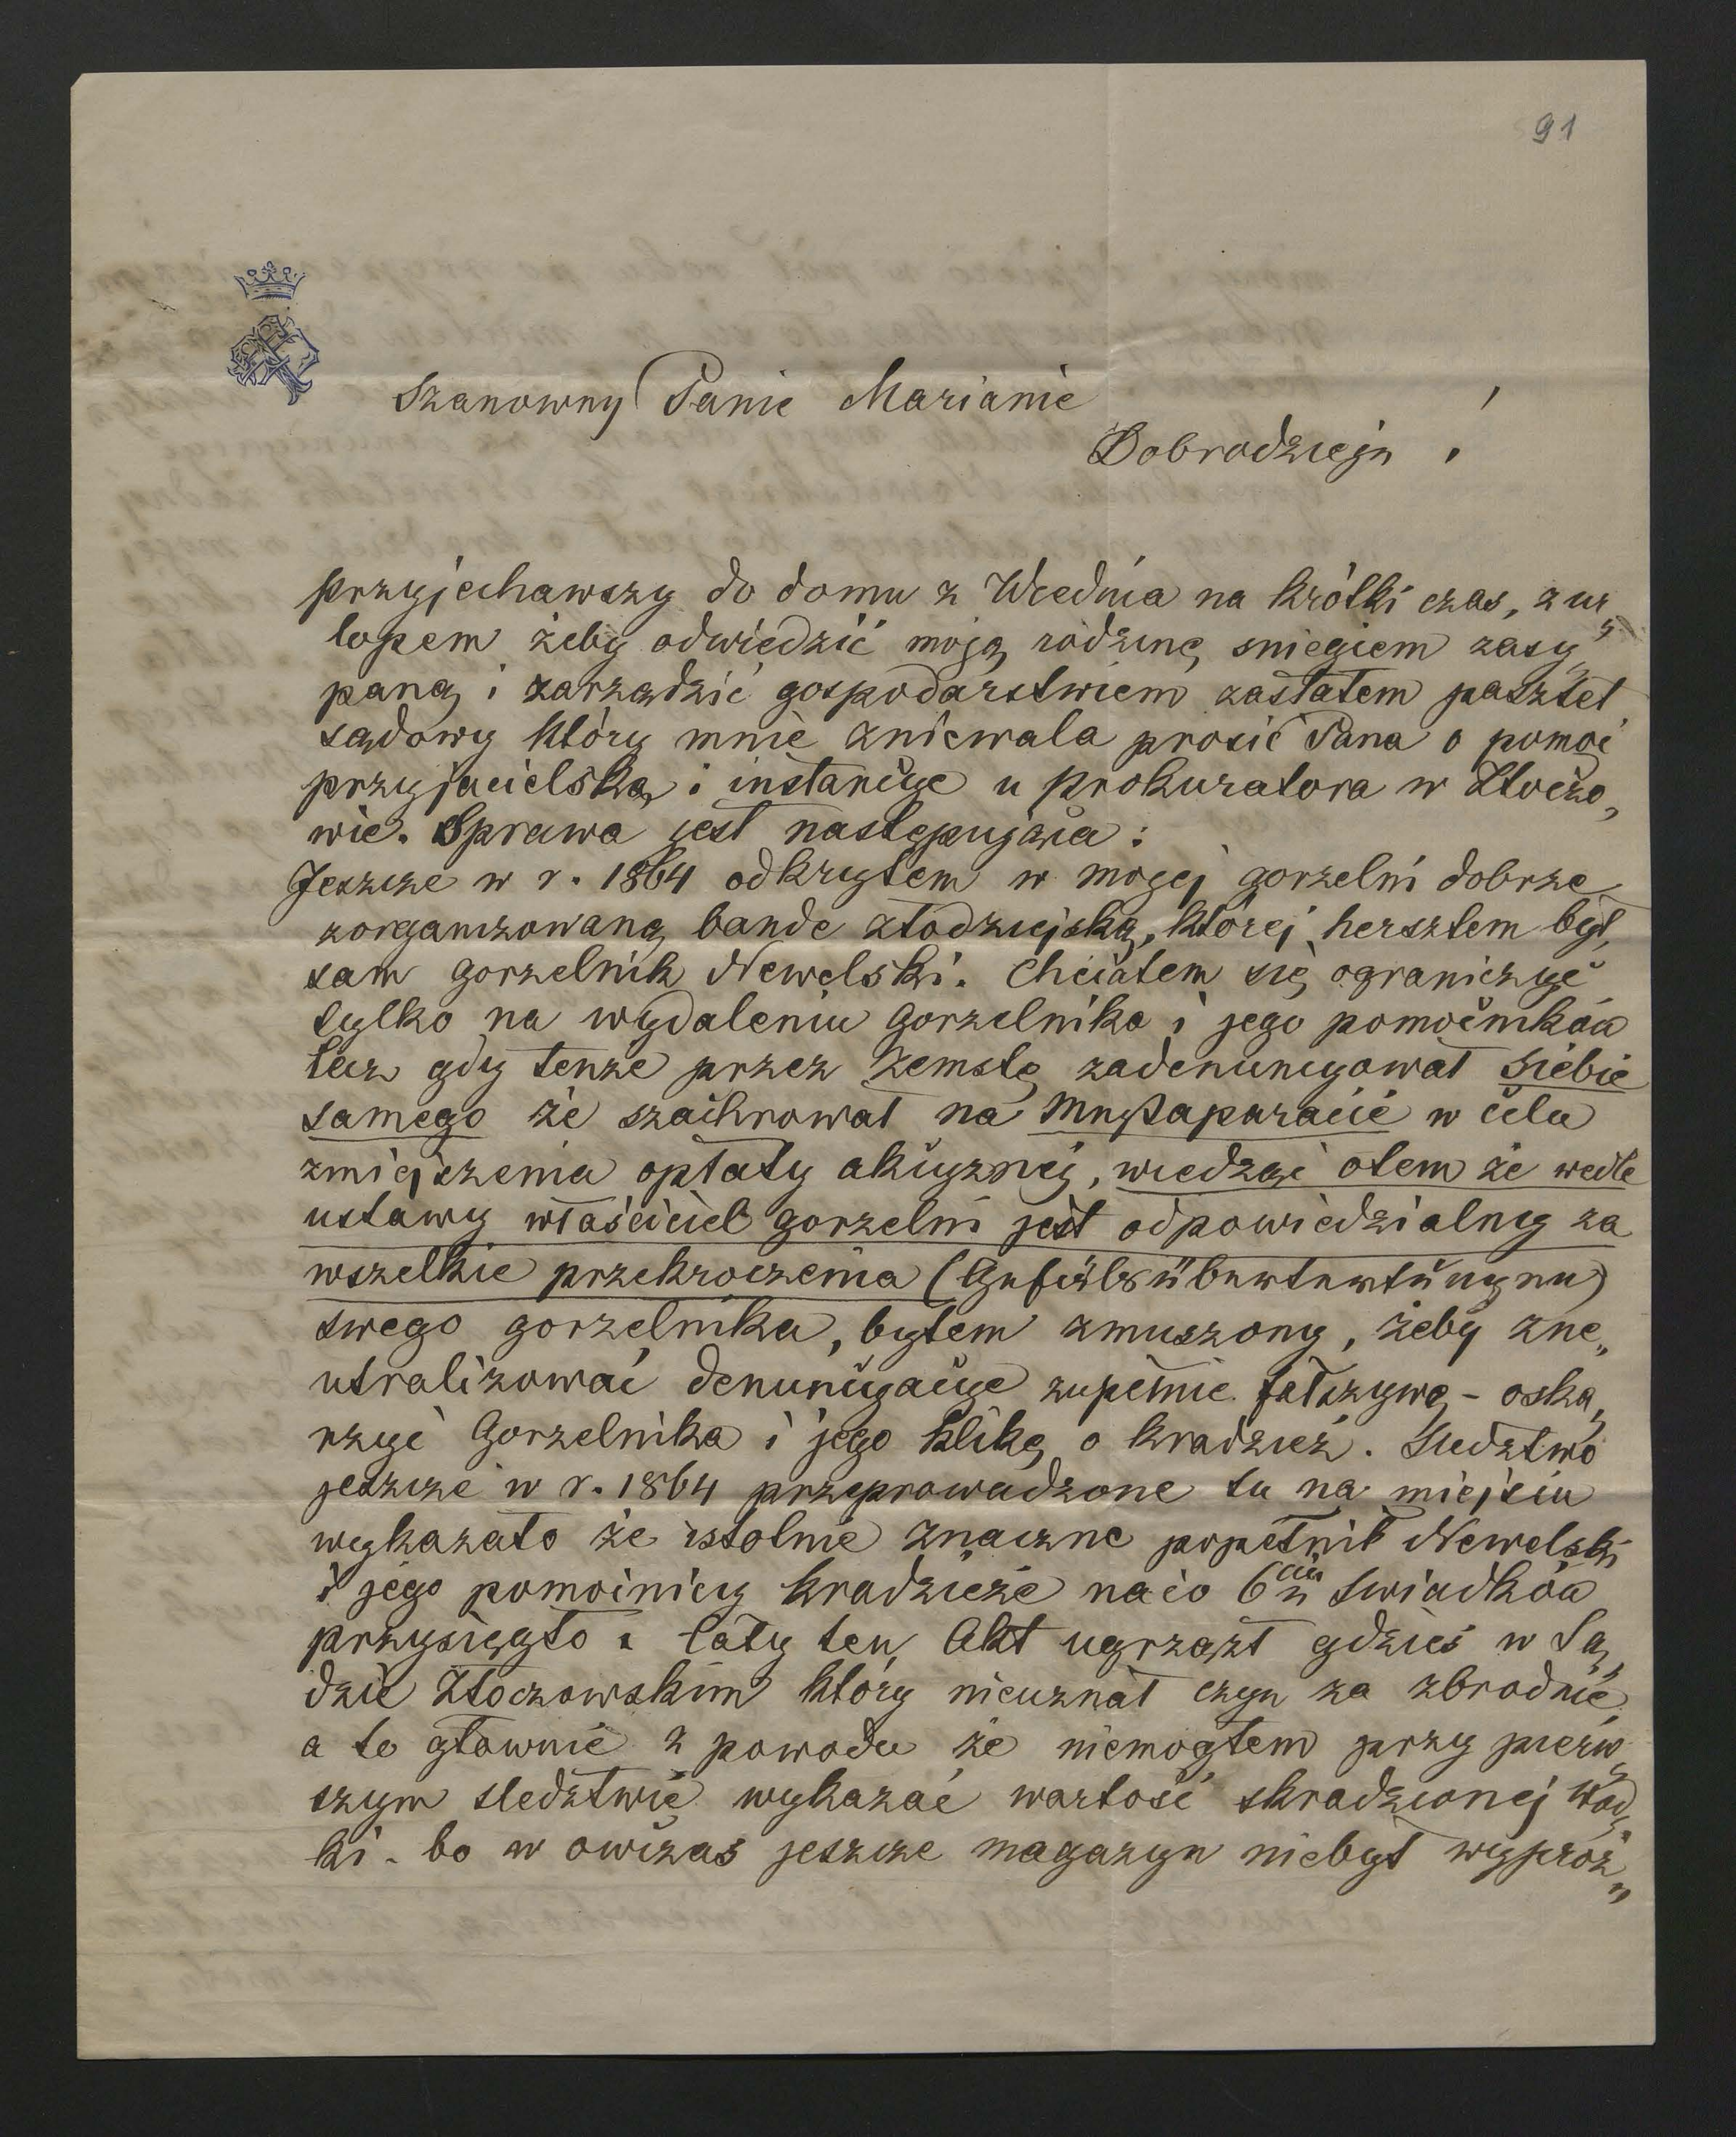 91
Szanowny Panie Marianie
Dobrodzieju !
przyjechawszy do domu z Wiednia na krótki czas, z ur„
lopem żeby odwiedzić moją rodzinę sniegiem zasy„
paną i zarządzić gospodarstwiem zastałem pasztet
sądowy który mnie zniewala prosić Pana o pomoc
przyjacielską i instancye u prokuratora w Złoczo„
wie. Sprawa jest następująca :
Jeszcze w r. 1864 odkryłem w mojej gorzelni dobrze
zorganizowaną bande złodziejską, której hersztem był
sam gorzelnik Newelski. Chciałem się ograniczyć
tylko na wydaleniu gorzelnika i jego pomocników
lecz gdy tenże przez zemstę zadenuncyował siebie
samego że szachrował na Meßaparacie w celu
zmiejszenia opłaty akcyznej, wiedząc otem że wedle
ustawy właściciel gorzelni jest odpowiedzialny za
wszelkie przekroczenia (Gefällsübertretungen)
swego gorzelnika, byłem zmuszony, żeby zne„
utralizować denuncyacye zupełnie fałszywą - oska„
rzyć Gorzelnika i jego klikę o kradzież. Sledztwo
jeszcze w r. 1864 przeprowadzone tu na miejscu
wykazało że istotnie znaczne popełnił Newelski
i jego pomocnicy kradzieże naco 6ciu swiadków
przysięgło. Cały ten Akt ugrzązł gdzieś w Są„
dzie Złoczowskim który nieuznał czyn za zbrodnię
a to głownie z powodu że niemogłem przy pierw„
szym sledztwie wykazać wartość skradzionej wód„
ki - bo w owczas jeszcze magazyn niebył wypróż„